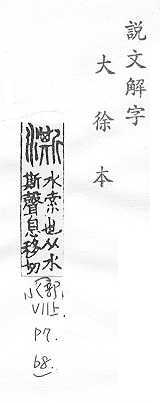 說文解字
大徐本
澌 水索也从水
斯聲息移切
VIII上
P7.
68.